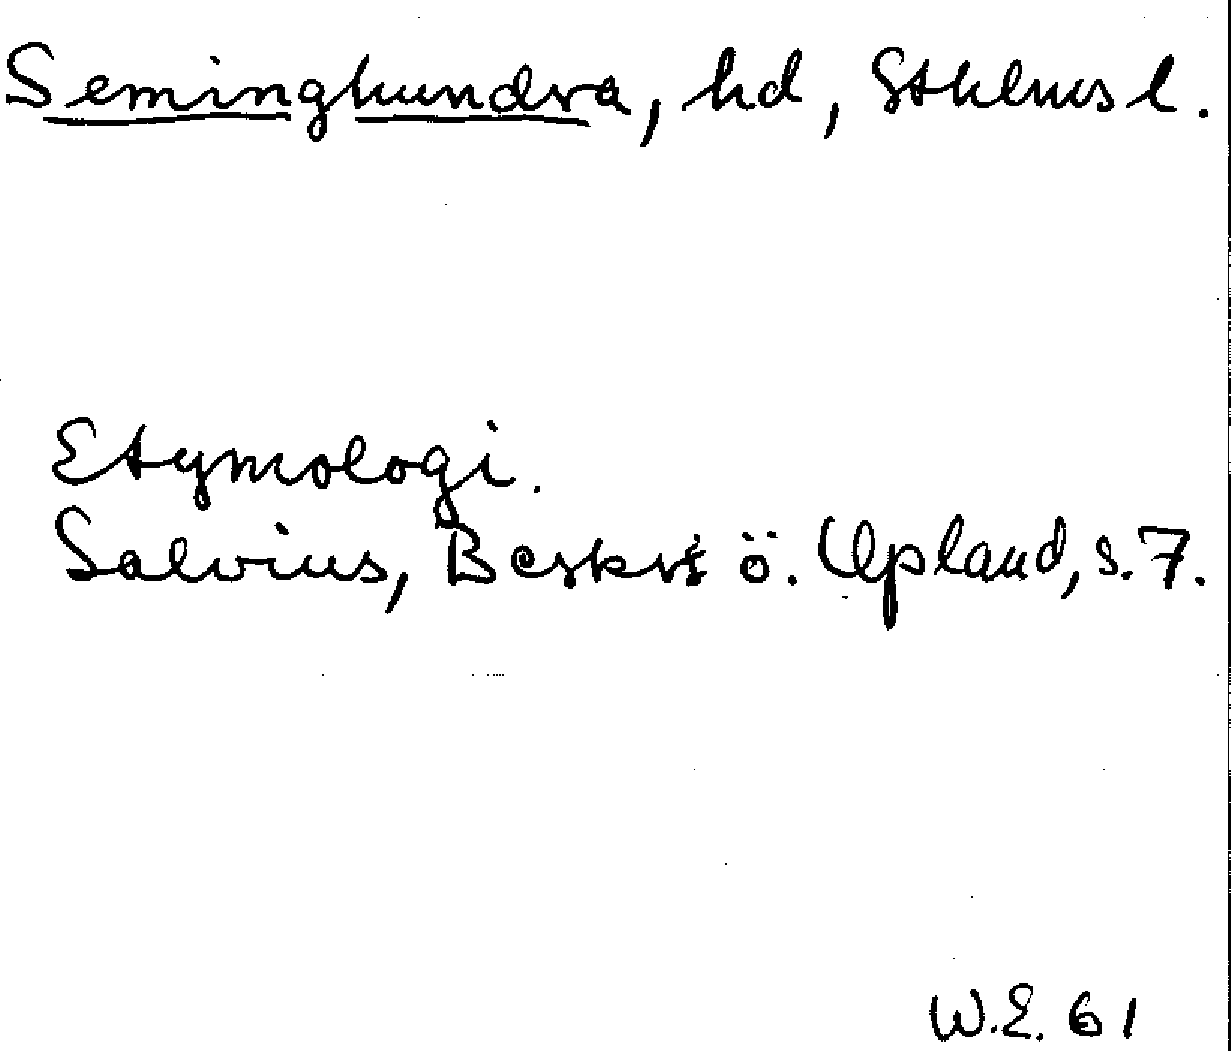 Seminghundra, hd, Sthlms l.
Etymologi.
Salvius, Beskr ö. Upland, s. 7.
W.E. 61